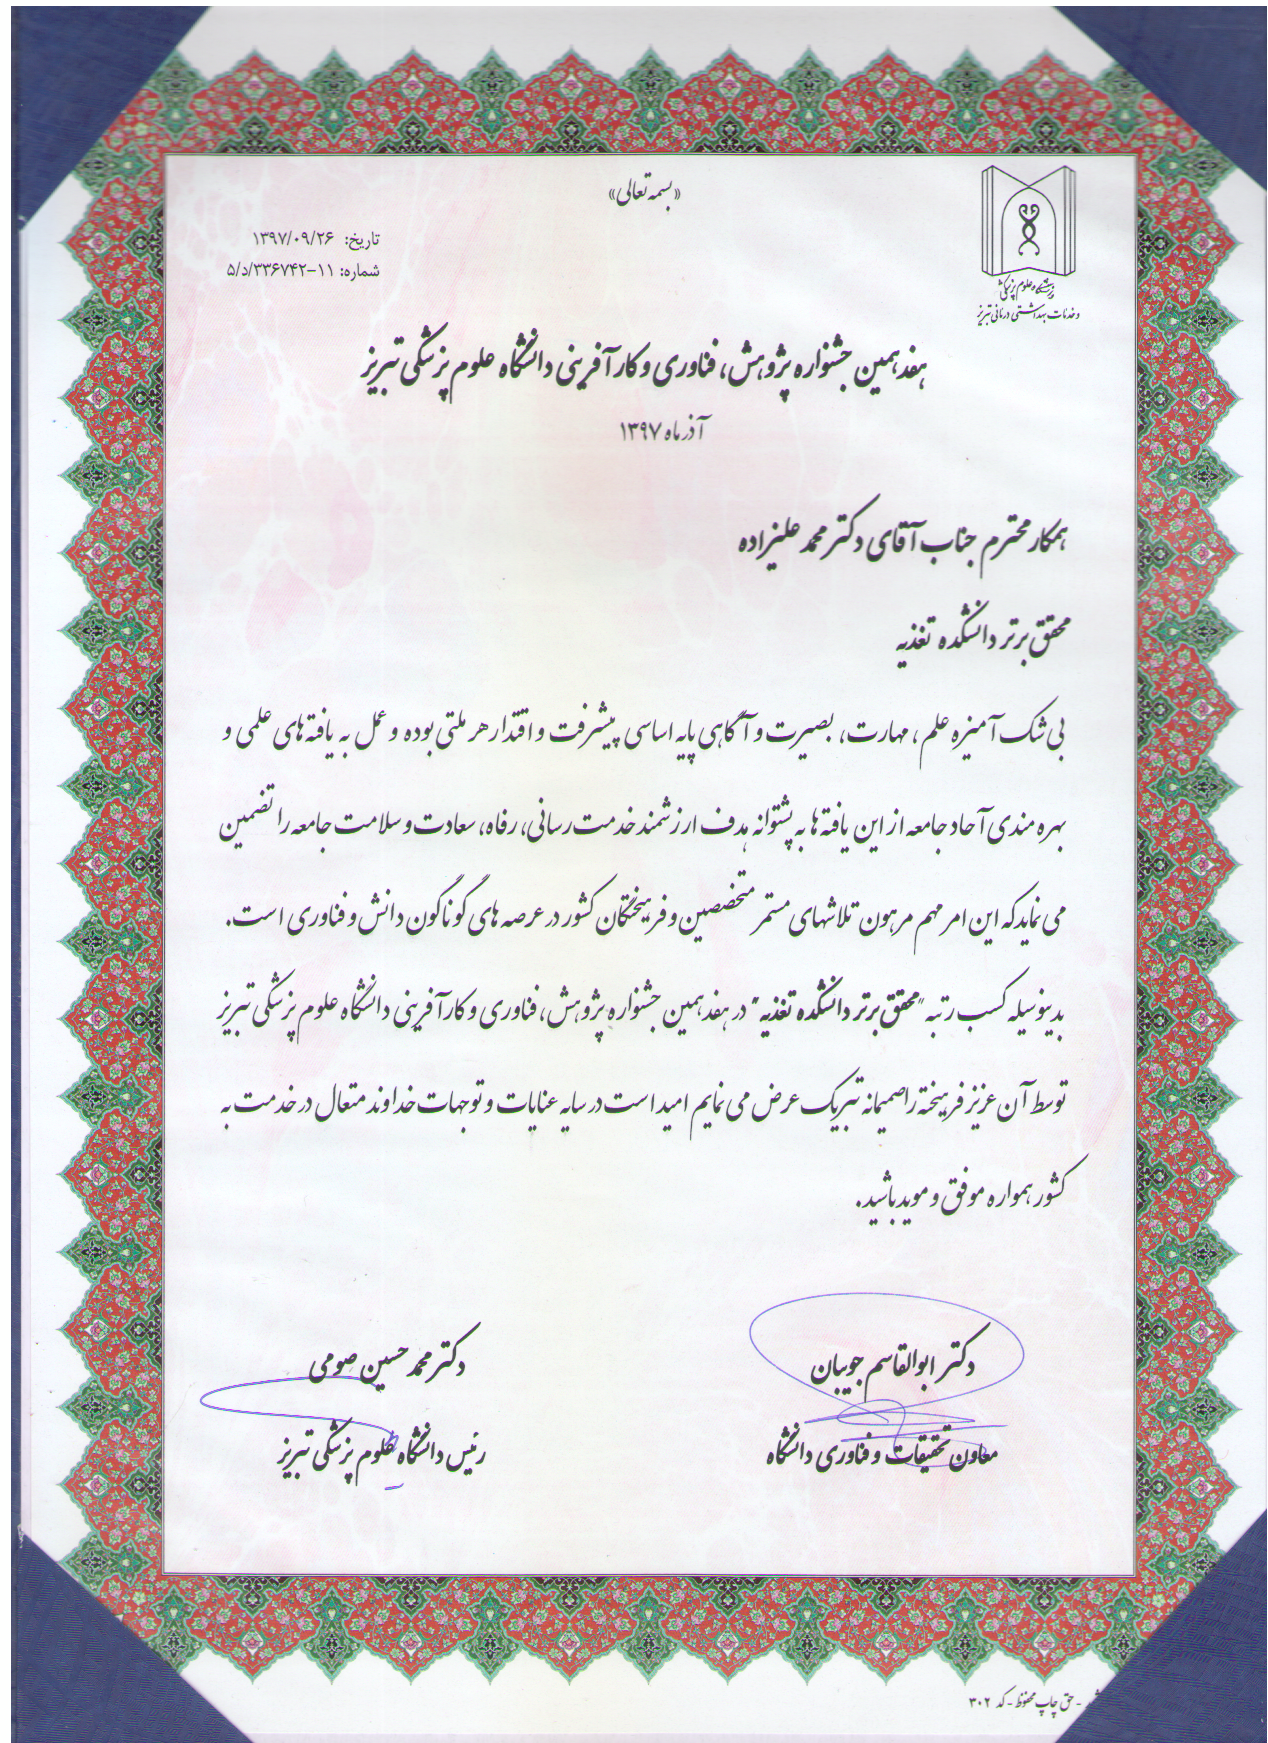 «بسمه تعالی»
تاریخ: ۱۳۹۷/۰۹/۲۶
شماره: ۱۱-۵/د/۳۳۶۷۴۲
دانشگاه علوم پزشکی
و خدمات بهداشتی درمانی تبریز
هفدهمین جشنواره پژوهش، فناوری و کارآفرینی دانشگاه علوم پزشکی تبریز
آذر ماه ۱۳۹۷
همکار محترم جناب آقای دکتر محمد علیزاده
محقق برتر دانشکده تغذیه
بی شک آمیزه علم، مهارت، بصیرت و آگاهی پایه اساسی پیشرفت و اقتدار هر ملتی بوده و عمل به یافته های علمی و
بهره مندی آحاد جامعه از این یافته ها به پشتوانه هدف ارزشمند خدمت رسانی، رفاه، سعادت و سلامت جامعه را تضمین
می نماید که این امر مهم مرهون تلاشهای مستمر متخصصین و فرهیختگان کشور در عرصه های گوناگون دانش و فناوری است.
بدینوسیله کسب رتبه "محقق برتر دانشکده تغذیه" در هفدهمین جشنواره پژوهش، فناوری و کارآفرینی دانشگاه علوم پزشکی تبریز
توسط آن عزیز فرهیخته را صمیمانه تبریک عرض می نمایم امید است در سایه عنایات و توجهات خداوند متعال در خدمت به
کشور همواره موفق و موید باشید.
دکتر ابوالقاسم جویبان
معاون تحقیقات و فناوری دانشگاه
دکتر محمد حسین صومی
رئیس دانشگاه علوم پزشکی تبریز
- حق چاپ محفوظ - کد ۳۰۲